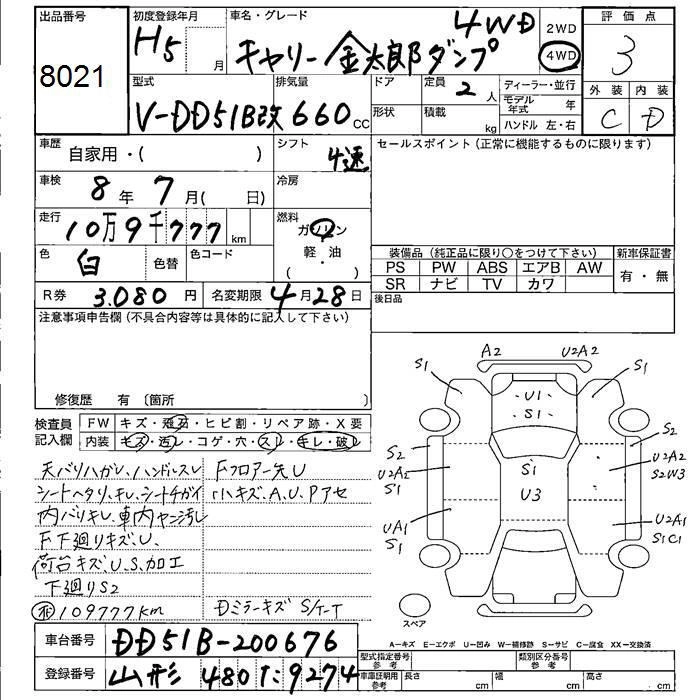 出品番号 初度登録年月 車名・グレード 評価点
8021
H5 月 キャリー金太郎ダンプ 4WD
2WD
4WD
3
型式 排気量 ドア 定員 2 人 ディーラー・並行 外装 内装
V-DD51B改 660 cc
形状 積載 kg モデル年式 年
ハンドル 左・右
C D
車歴 自家用・( ) シフト 4速 セールスポイント(正常に機能するものに限ります)
車検 8年 7月( 日) 冷房
走行 10万9千777 km 燃料 ガソリン
軽・油
( )
色 白 色替 色コード
装備品(純正品に限り○をつけて下さい) 新車保証書
PS PW ABS エアB AW 有・無
SR ナビ TV カワ
R券 3,080円 名変期限 4月28日 後日品
注意事項申告欄(不具合内容等は具体的に記入して下さい)
修復歴 有 〔箇所 〕
検査員記入欄 FW キズ・飛石・ヒビ割・リペア跡・X要
内装 キズ・汚レ・コゲ・穴・スレ・キレ・破レ
天バリハガレ、ハンドルスレ Fフロアー先U
シートヘタリ、キレ、シートチガイ ハキズ、A、U、Pアセ
内バリキレ、車内ヤニ汚レ
F下廻りキズ、U、
荷台キズ、U、S、加工
下廻りS2
109777km Dミラーキズ S/T-T
A2 U2A2
S1 S1
U1
S1
S2 S2
U2A2 U2A2
S1 S2W3
S1
U3
UA1 U2A1
S1 S1C1
スペア
A-キズ E-エクボ U-凹み W-補修跡 S-サビ C-腐食 XX-交換済
車台番号 DD51B-200676
型式指定番号 参考 類別区分番号 参考
登録番号 山形 480 た 9274
車庫証明用 参考 長さ cm 幅 cm 高さ cm